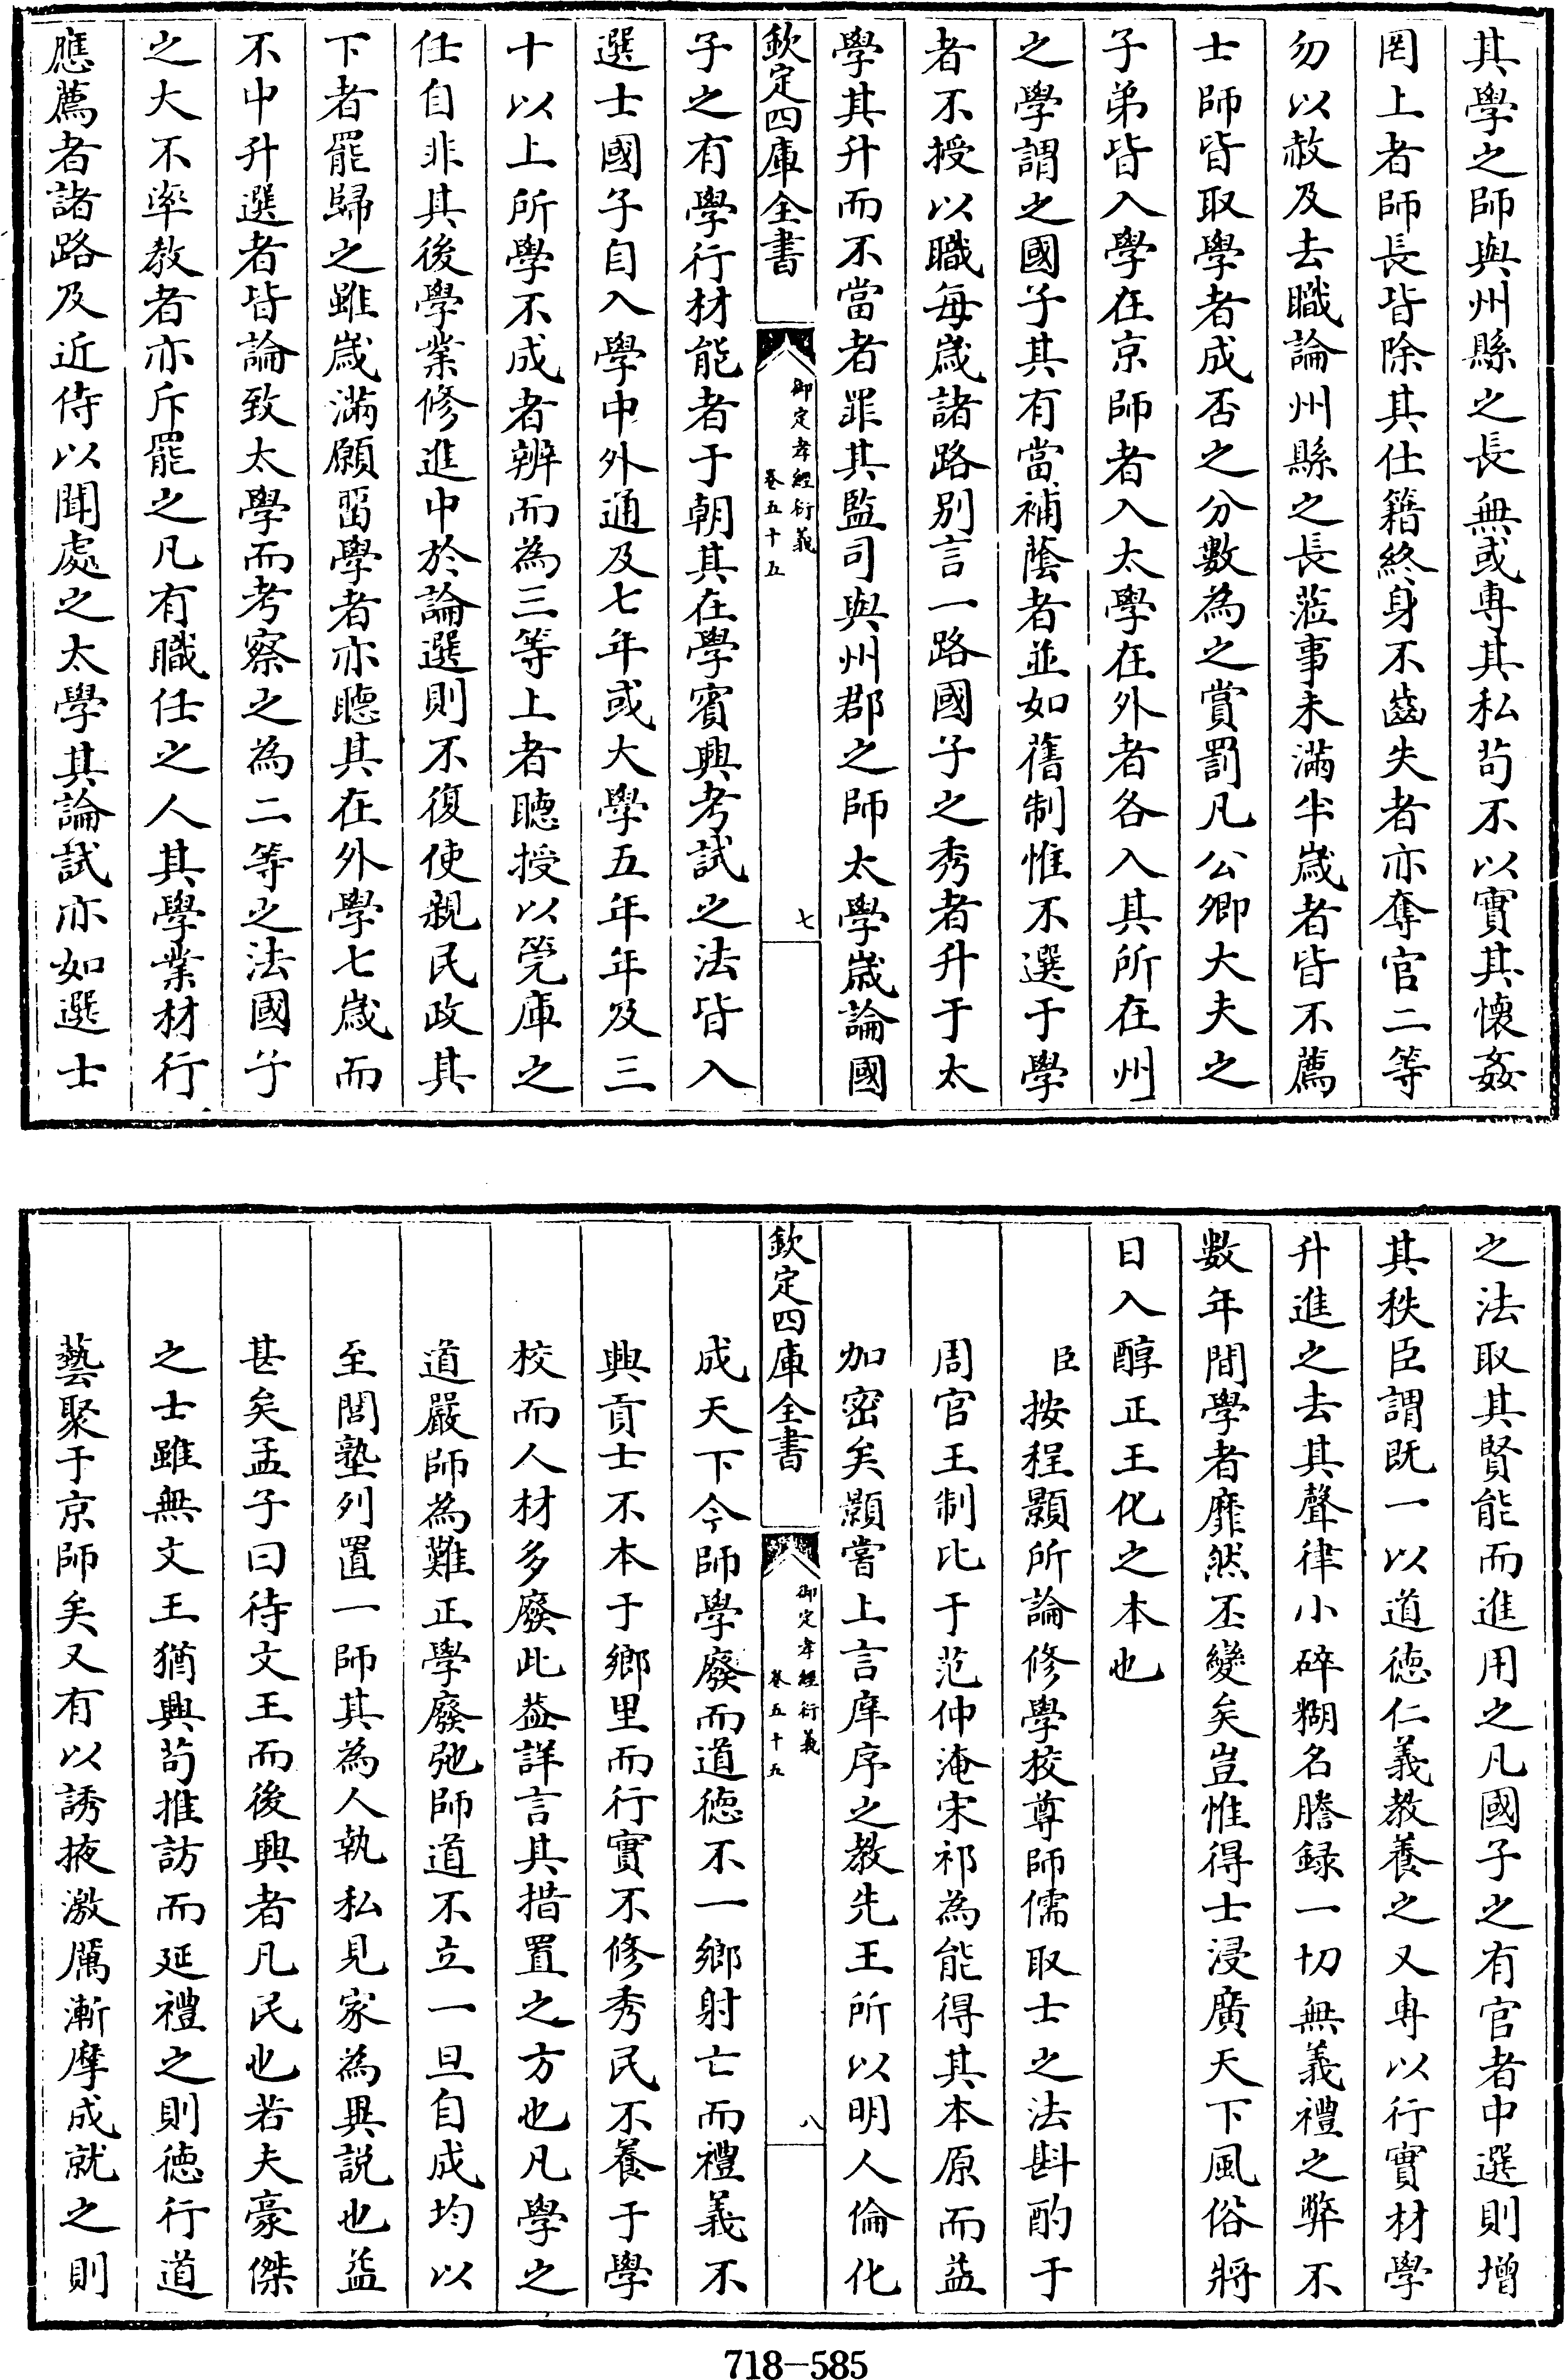 其學之師與州縣之長無或專其私苟不以實其懷姦
罔上者師長皆除其仕籍終身不齒失者亦奪官二等
勿以赦及去職論州縣之長蒞事未滿半歲者皆不薦
士師皆取學者成否之分數為之賞罰凡公卿大夫之
子弟皆入學在京師者入太學在外者各入其所在州
之學謂之國子其有當補蔭者並如舊制惟不選于學
者不授以職每歲諸路别言一路國子之秀者升于太
學其升而不當者罪其監司與州郡之師太學歲論國
欽定四庫全書
御定孝經衍義
卷五十五
七
子之有學行材能者于朝其在學賓興考試之法皆入
選士國子自入學中外通及七年或大學五年年及三
十以上所學不成者辨而為三等上者聽授以筦庫之
任自非其後學業修進中於論選則不復使親民政其
下者罷歸之雖歲滿願留學者亦聽其在外學七歲而
不中升選者皆論致太學而考察之為二等之法國子
之大不率教者亦斥罷之凡有職任之人其學業材行
應薦者諸路及近侍以聞處之太學其論試亦如選士
之法取其賢能而進用之凡國子之有官者中選則增
其秩臣謂既一以道徳仁義教養之又專以行實材學
升進之去其聲律小碎糊名謄録一切無義禮之弊不
數年間學者靡然丕變矣豈惟得士浸廣天下風俗將
日入醇正王化之本也
臣按程顥所論修學校尊師儒取士之法斟酌于
周官王制比于范仲淹宋祁為能得其本原而益
加密矣顥嘗上言庠序之教先王所以明人倫化
欽定四庫全書
御定孝經衍義
卷五十五
八
成天下今師學廢而道徳不一鄉射亡而禮義不
興貢士不本于鄉里而行實不修秀民不養于學
校而人材多廢此葢詳言其措置之方也凡學之
道嚴師為難正學廢弛師道不立一旦自成均以
至閭塾列置一師其為人執私見家為異説也益
甚矣孟子曰待文王而後興者凡民也若夫豪傑
之士雖無文王猶興苟推訪而延禮之則徳行道
藝聚于京師矣又有以誘掖激厲漸摩成就之則
718-585